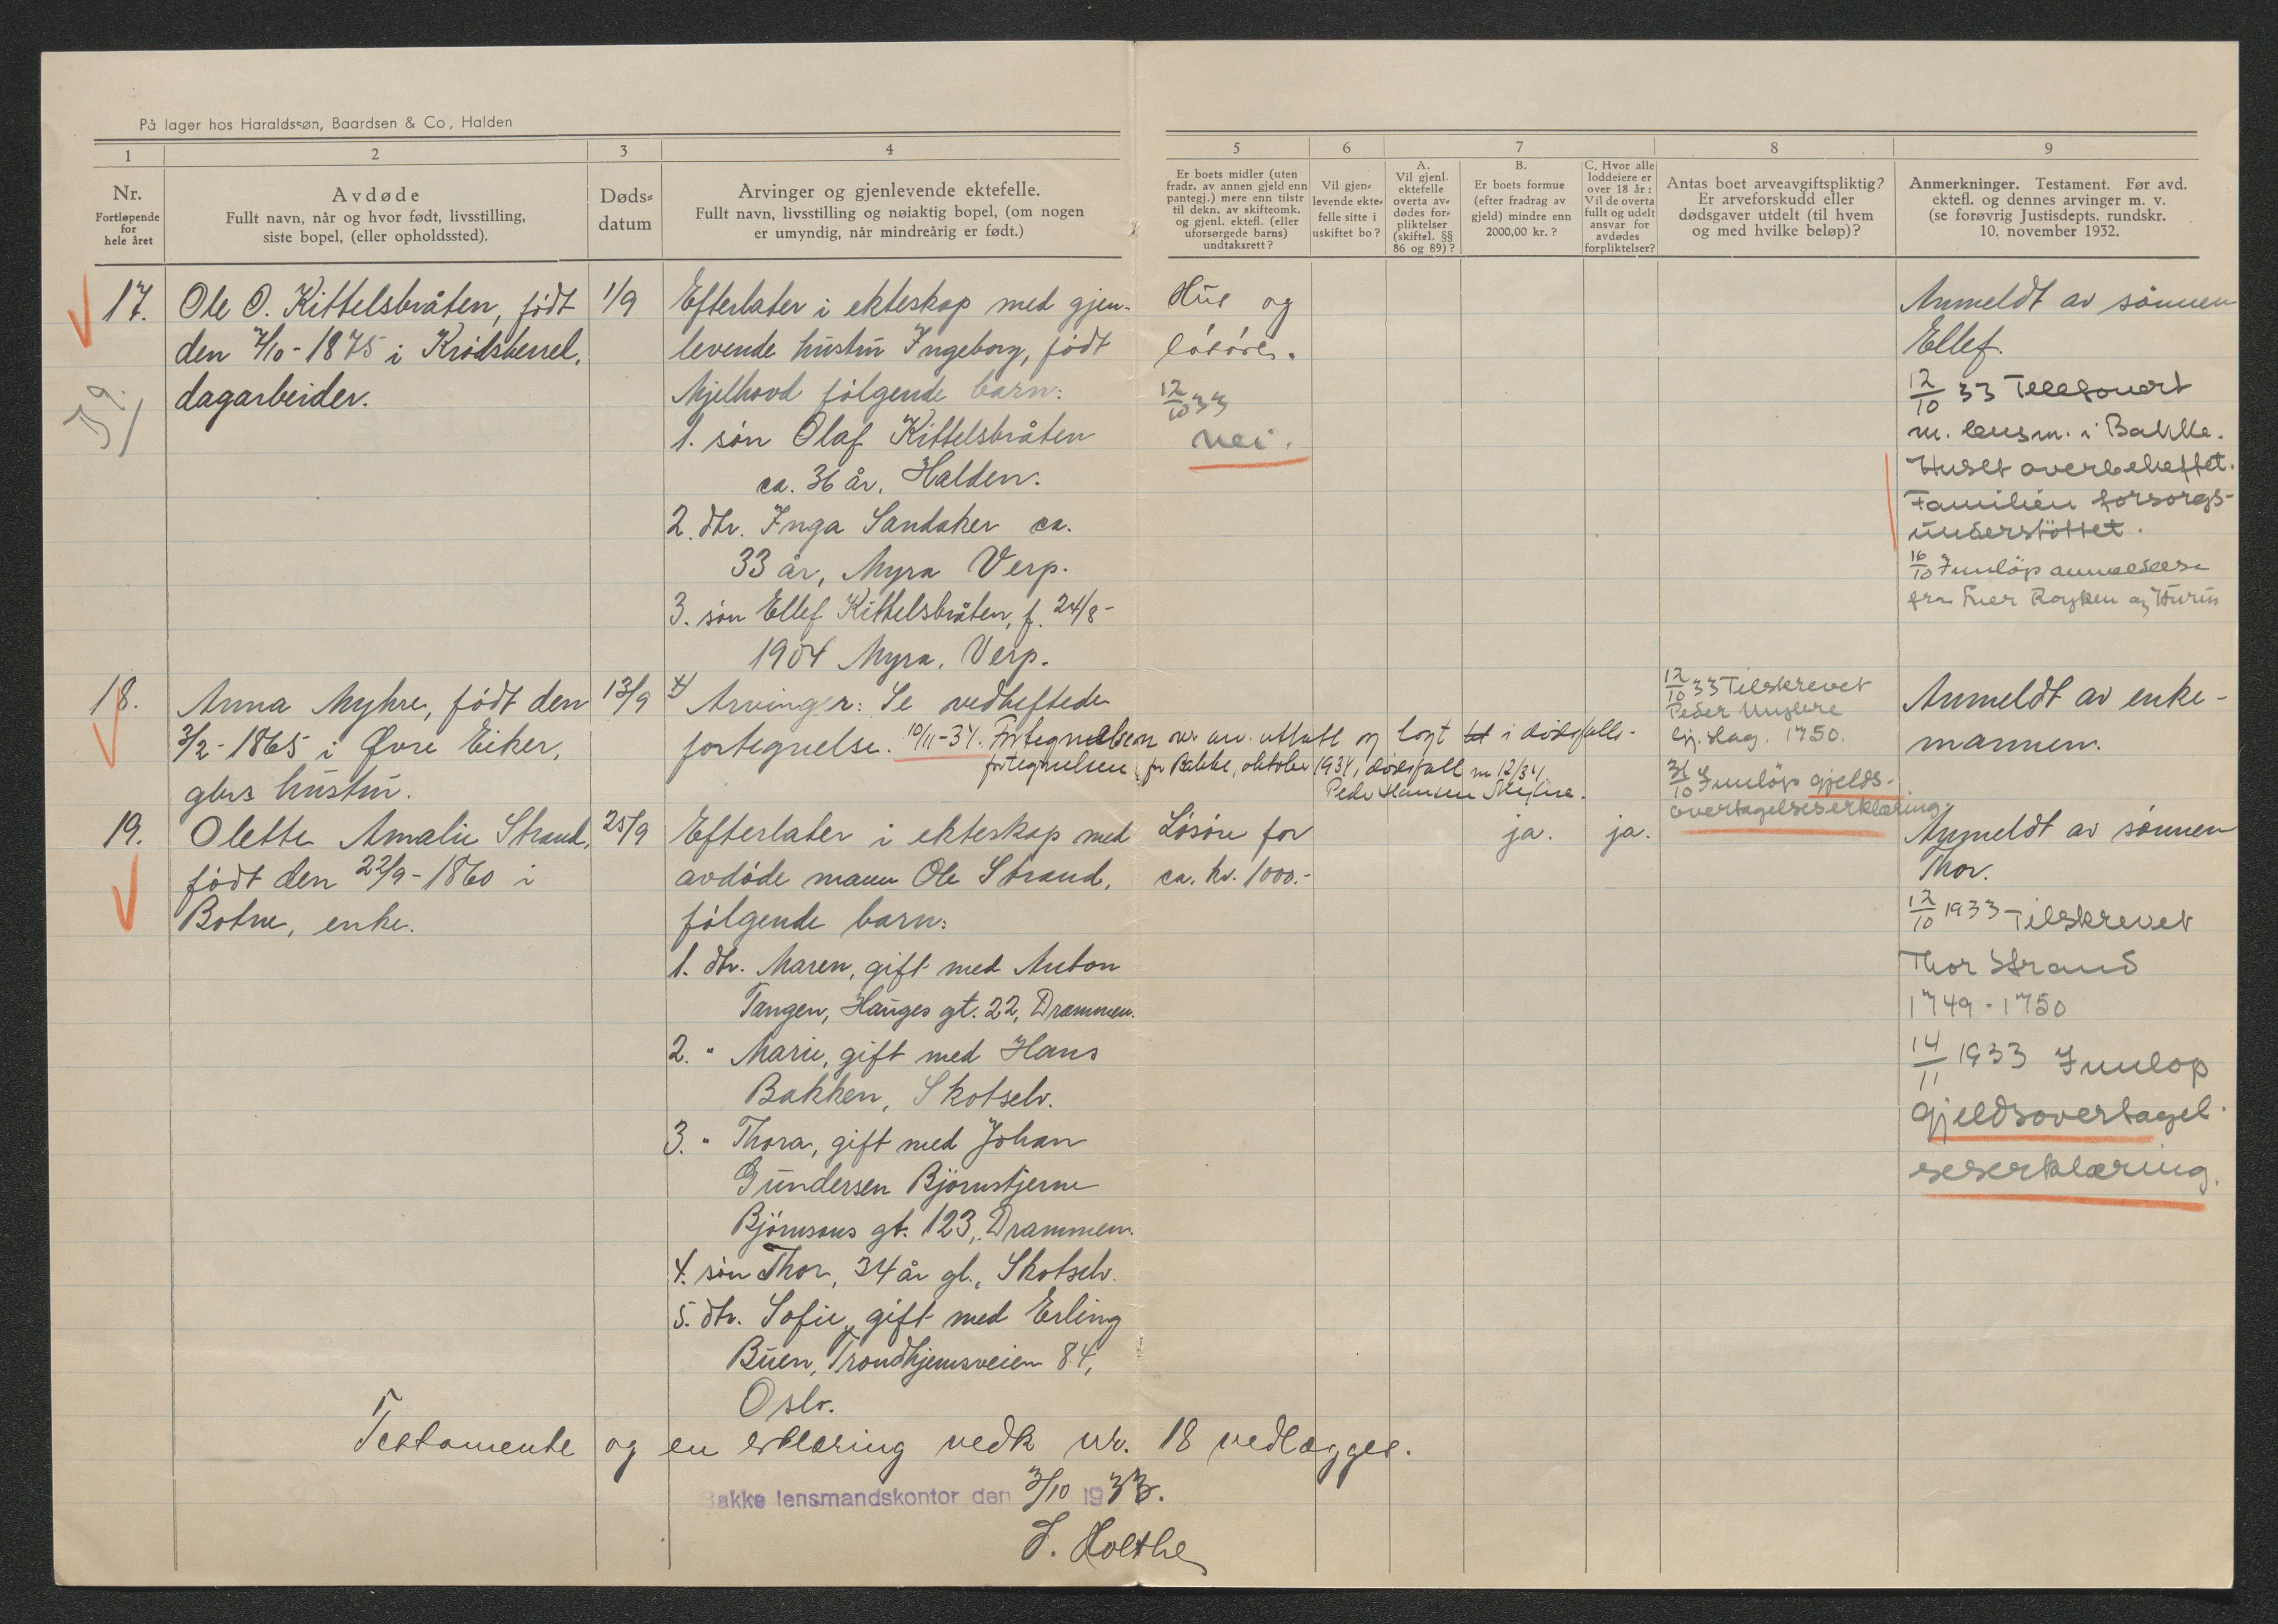 På lager hos Haraldssøn, Baardsen & Co, Halden
1 2 3 4 5 6 7 8 9
Nr.
Fortløpende
for
hele året
Avdøde
Fullt navn, når og hvor født, livsstilling,
siste bopel, (eller opholdssted).
Døds-
datum
Arvinger og gjenlevende ektefelle.
Fullt navn, livsstilling og nøiaktig bopel, (om nogen
er umyndig, når mindreårig er født.)
Er boets midler (uten
fradr. av annen gjeld enn
pantegj.) mere enn tilstr
til dekn. av skifteomk.
og gjenl. ektefl. (eller
uforsørgede barns)
undtaksrett?
Vil gjen-
levende ekte-
felle sitte i
uskiftet bo?
A.
Vil gjenl.
ektefelle
overta av-
dødes for-
pliktelser
(skiftel. §§
86 og 89)?
B.
Er boets formue
(efter fradrag av
gjeld) mindre enn
2000,00 kr.?
C. Hvor alle
loddeiere er
over 18 år:
Vil de overta
fullt og udelt
ansvar for
avdødes
forpliktelser?
Antas boet arveavgiftspliktig?
Er arveforskudd eller
dødsgaver utdelt (til hvem
og med hvilke beløp)?
Anmerkninger. Testament. Før avd.
ektefl. og dennes arvinger m. v.
(se forøvrig Justisdepts. rundskr.
10. november 1932.
17.
Ole O. Kittelsbråten, født
den 7/10-1875 i Krødsherred,
dagarbeider.
1/9
Efterlater i ekteskap med gjen-
levende hustru Ingeborg, født
Mjelhovd følgende barn:
1. søn Olaf Kittelsbråten
ca. 36 år, Halden.
2. dtr. Inga Sandaker ca.
33 år, Myra Verp.
3. søn Ellef Kittelsbråten, f. 24/8-
1904 Myra, Verp.
Hus og
løsøre.
12/10 33
nei.
Anmeldt av sønnen
Ellef.
12/10 33 Telefonert
m. lensm. i Bakke.
Huset overbeheftet.
Familien forsorgs-
understøttet.
16/10 Innløp anmeldelse
fra
18.
Anna Myhre, født den
3/2-1865 i Øvre Eiker,
gbrs hustru.
13/9
4/ Arvinger: Se vedheftede
fortegnelse. 10/11-34. Fortegnelsen over arv. uttatt og lagt i dødsfalls-
fortegnelsen for Bakke, oktober 1934, dødsfall nr 12/34
Peder Hansen Myhre.
12/10 33 Tilskrevet
Peder Myhre
1750.
31/10 Innløp gjelds-
overtagelseserklæring.
Anmeldt av enke-
mannen.
19.
Olette Amalie Strand,
født den 22/9-1860 i
Botne, enke.
25/9
Efterlater i ekteskap med
avdøde mann Ole Strand,
følgende barn:
1. dtr. Maren, gift med Anton
Tangen, Hauges gt. 22, Drammen.
2. " Marie, gift med Hans
Bakken, Skotselv.
3. " Thora, gift med Johan
Gundersen Bjørnstjerne
Bjørnsons gt. 123, Drammen.
4. søn Thor, 34 år gl., Skotselv.
5. dtr. Sofie, gift med Erling
Buen, Trondhjemsveien 84,
Oslo.
Løsøre for
ca. kr. 1000.-
ja.
ja.
Anmeldt av sønnen
Thor.
12/10 1933 Tilskrevet
Thor Strand
1749-1750
14/11 1933 Innløp
gjeldsovertagel-
seserklæring.
Testamente og en erklæring vedk nr. 18 vedlægges.
Bakke lensmandskontor den 3/10 1933.
S. Holthe